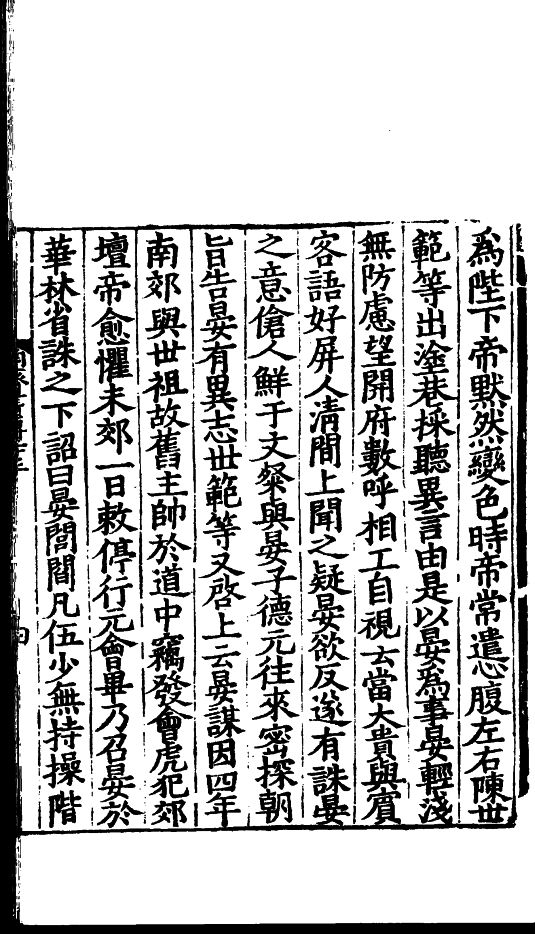 爲陛下帝默然變色時帝常遣心腹左右陳世
範等出塗巷採聽異言由是以晏爲事晏輕淺
無防慮望開府數呼相工自視云當大貴與賓
客語好屏人清間上聞之疑晏欲反遂有誅晏
之意傖人鮮于文粲與晏子德元往來密探朝
旨告晏有異志世範等又啓上云晏謀因四年
南郊與世祖故舊主帥於道中竊發會虎犯郊
壇帝愈懼未郊一日敕停行元會畢乃召晏於
華林省誅之下詔曰晏閭閻凡伍少無持操階